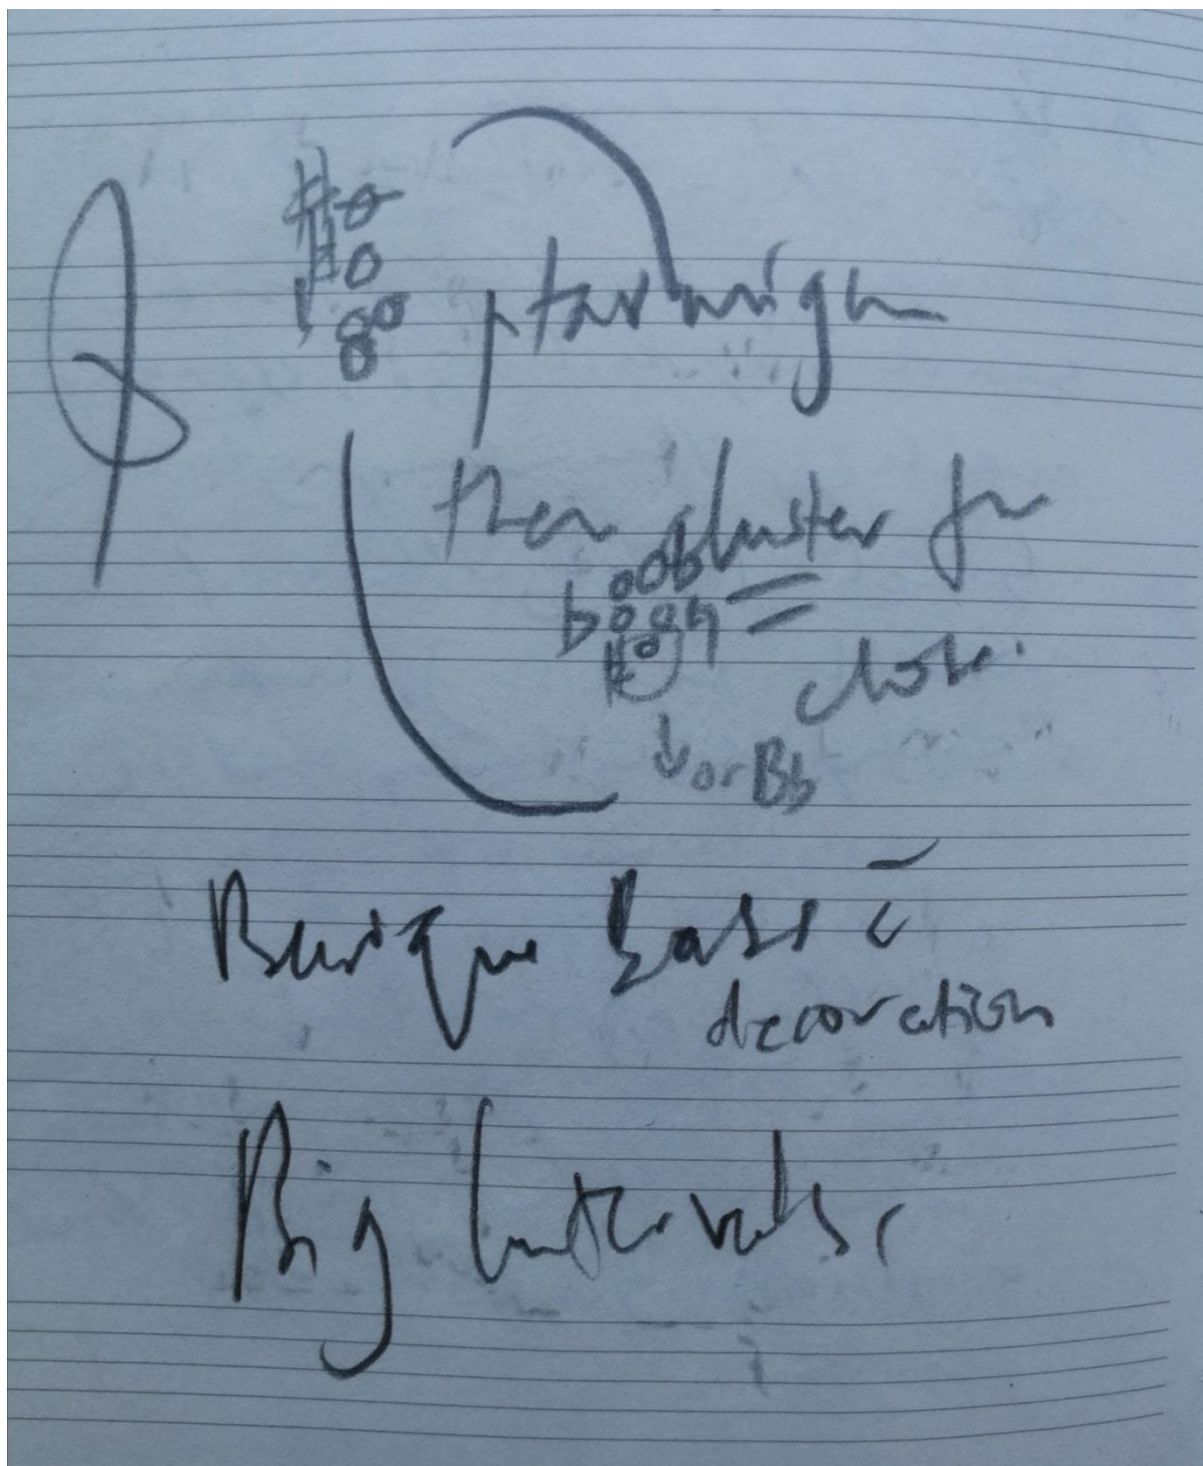 ptarmigan
then cluster for
close.
or Bb
Bass c̄
decoration
Big Intervals.